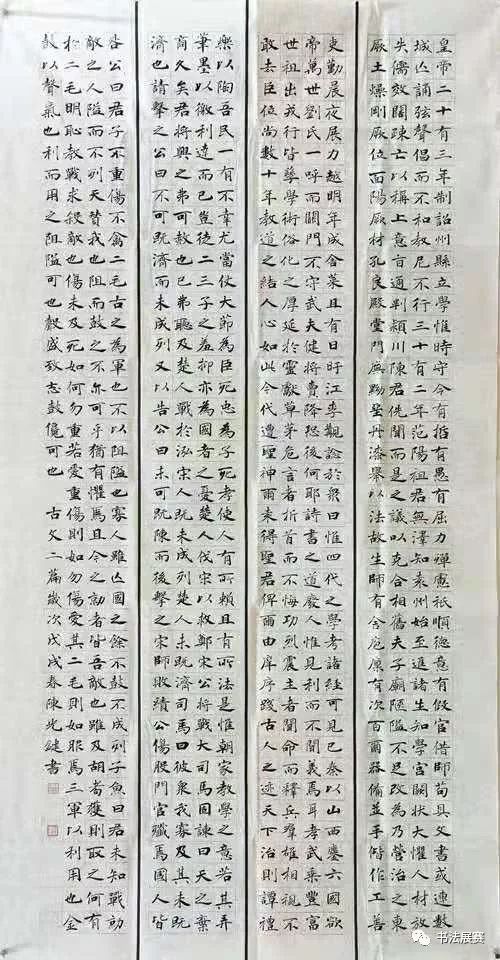 皇帝二十有三年制詔州縣立學惟時守令有哲有愚有屈力殫慮祗順德意有假官借師苟具文書或連數
城亾誦弦聲倡而不和教尼不行三十有二年范陽祖君無澤知袁州始至進諸生知學宮闕狀大懼人材放
失儒效闊疎亡以稱上意旨通判潁川陳君侁聞而是之議以克合相舊夫子廟陿隘不足改為乃營治之東
厥土燥剛厥位面陽厥材孔良殿堂門廡黝堊丹漆舉以法故生師有舍庖廩有次百爾器備並手偕作工善
吏勤晨夜展力越明年成舍菜且有日旴江李覯諗於衆曰惟四代之學考諸經可見已秦以山西鏖六國欲
帝萬世劉氏一呼而關門不守武夫健將賣降恐後何耶詩書之道廢人惟見利而不聞義焉耳孝武乘豐富
世祖出戎行皆孳學術俗化之厚延於靈獻草茅危言者折首而不悔功烈震主者聞命而釋兵羣雄相視不
敢去臣位尚數十年教道之結人心如此今代遭聖神爾袁得聖君俾爾由庠序踐古人之迹天下治則譚禮
樂以陶吾民一有不幸尤當仗大節為臣死忠為子死孝使人有所賴且有所法是惟朝家教學之意若其弄
筆墨以徼利達而已豈徒二三子之羞抑亦為國者之憂楚人伐宋以救鄭宋公將戰大司馬固諫曰天之棄
商久矣君將興之弗可赦也已弗聽及楚人戰於泓宋人既未成列楚人未既濟司馬曰彼衆我寡及其未既
濟也請擊之公曰不可既濟而未成列又以告公曰未可既陳而後擊之宋師敗績公傷股門官殲焉國人皆
咎公曰君子不重傷不禽二毛古之為軍也不以阻隘也寡人雖亾國之餘不鼓不成列子魚曰君未知戰勍
敵之人隘而不列天贊我也阻而鼓之不亦可乎猶有懼焉且今之勍者皆吾敵也雖及胡耇獲則取之何有
於二毛明恥教戰求殺敵也傷未及死如何勿重若愛重傷則如勿傷愛其二毛則如服焉三軍以利用也金
鼓以聲氣也利而用之阻隘可也聲盛致志鼓儳可也 古文二篇歲次戊戌春陳光鍵書
书法展赛